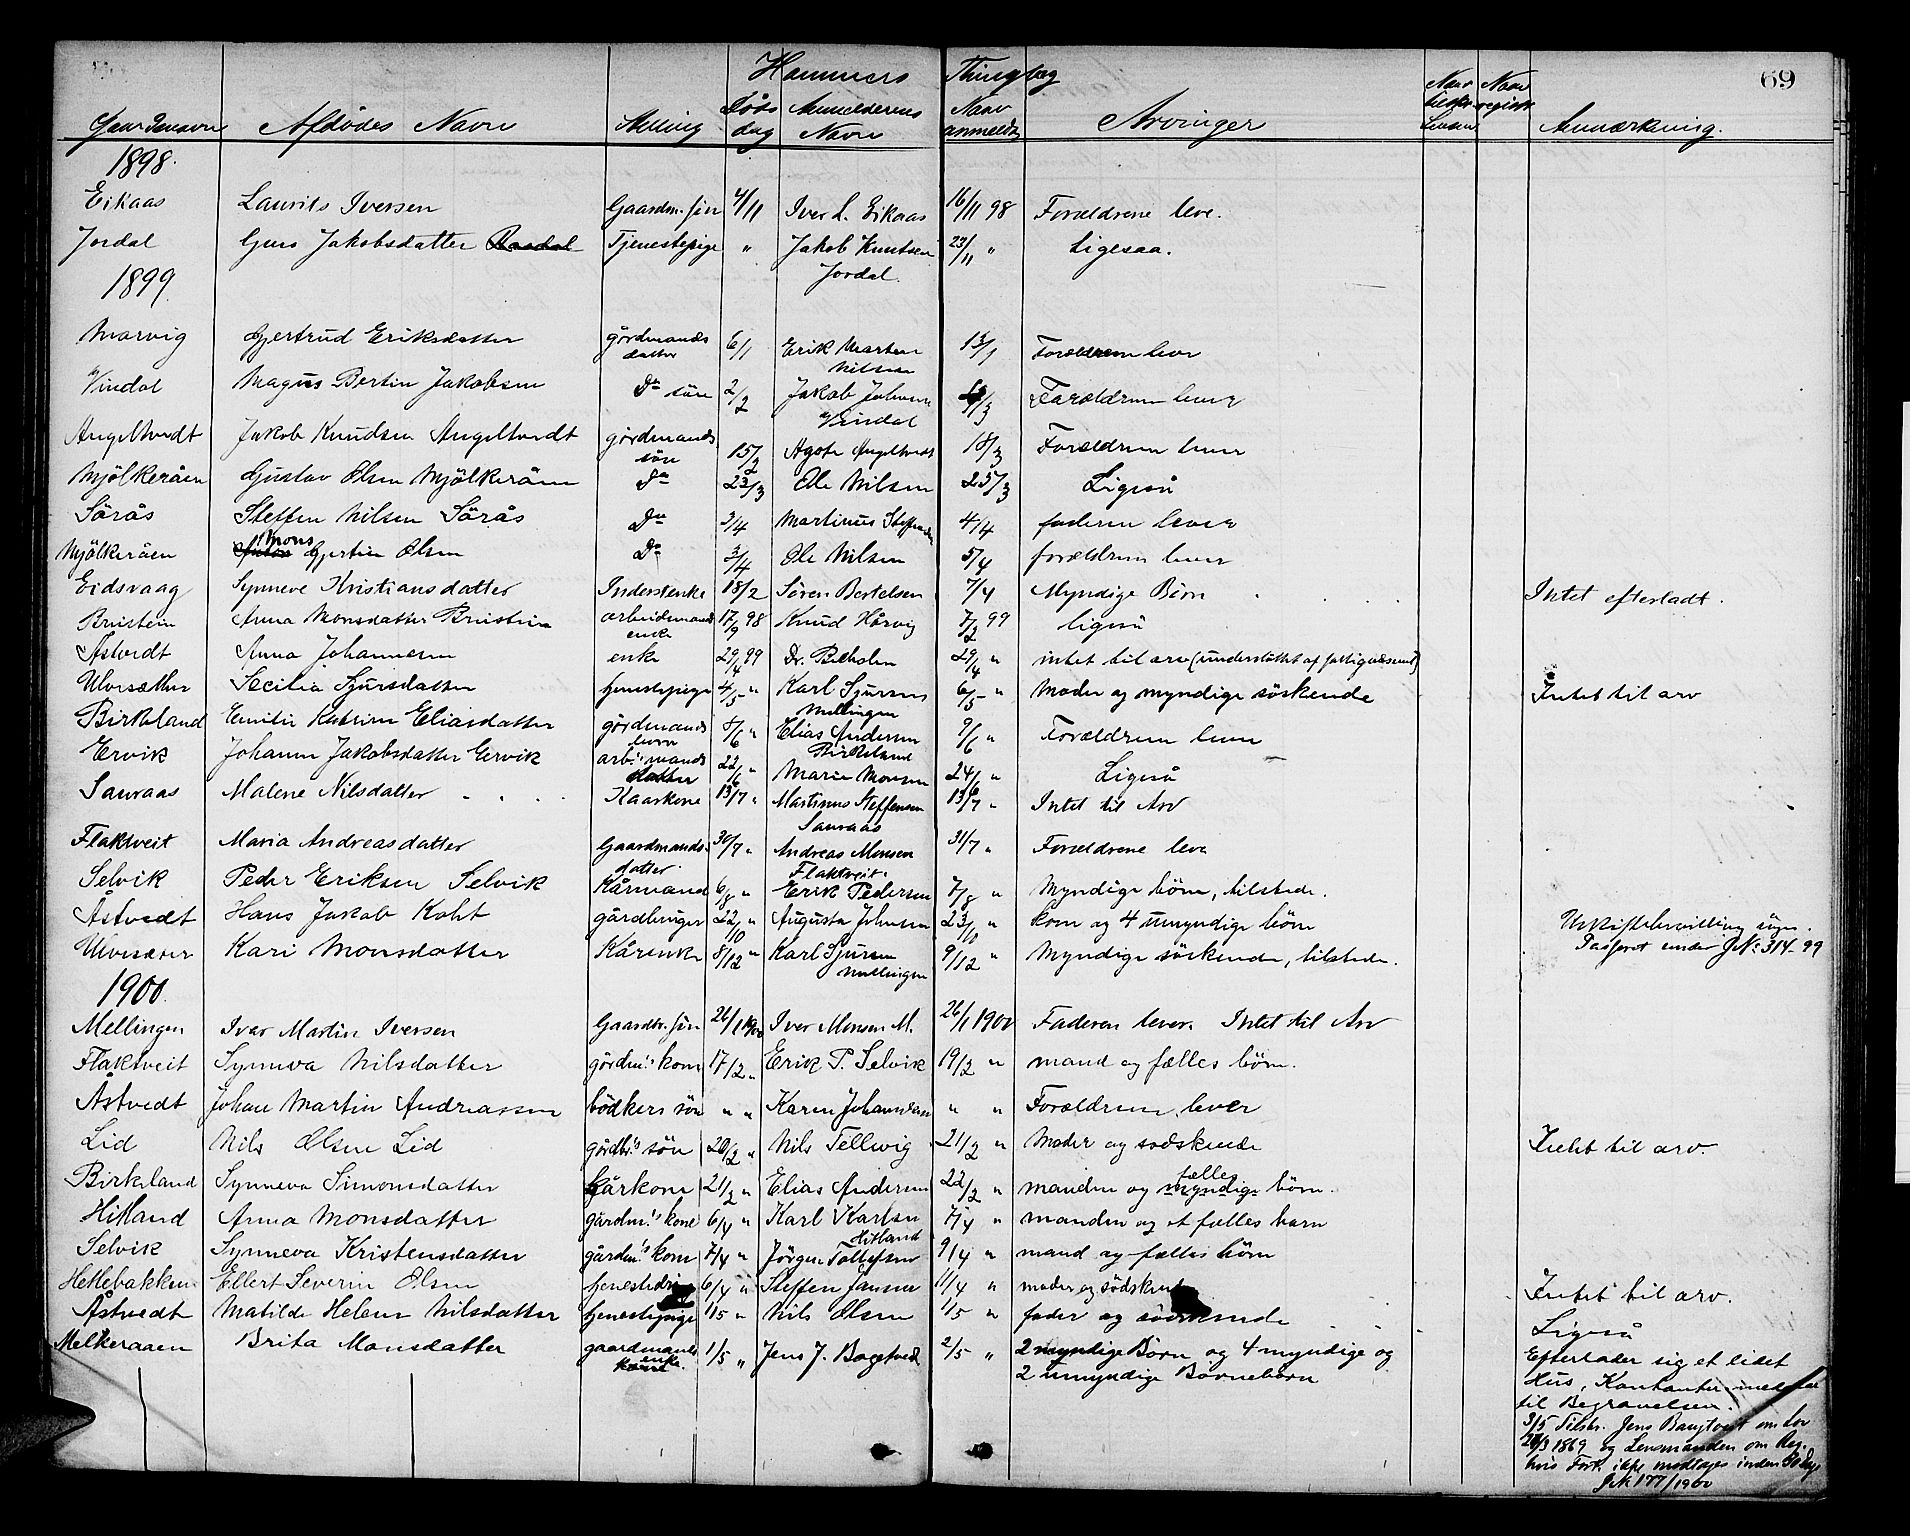 Hammers Thinglag
69
Afdødes Navn Stilling Døds dag Anmelderens Navn Naar anmeldt Arvinger Anmærkning.
1898.
Eikaas Laurits Iversen Gaardm. søn 4/11 Iver L. Eikaas 16/11 98 Forældrene leve.
Jordal Guro Jakobsdatter Tjenestepige " Jakob Knutsen 23/11 " Ligesaa.
Jordal.
1899
Morvig Gjertrud Eriksdatter gårdmands datter 6/1 Erik Marten Nilsen 13/1 Forældrene lever
Vindal Magnus Bertin Jakobsen Do søn 2/2 Jakob Johnsen Vindal /3 Forældrene lever
Angeltvedt Jakob Knudsen Angeltvedt gårdmands søn 15/2 Agote Angeltvedt 18/3 Forældrene lever
Mjölkeråen Gustav Olsen Mjölkeråen Do 23/3 Ole Nilsen 25/3 Ligeså
Sörås Steffen Nilsen Sörås Do 3/4 Martinus Steffensen 4/4 faderen lever
Mjölkeråen Mons Gjertin Olsen Do 3/4 Ole Nilsen 5/4 forældrene lever
Eidsvaag Synneve Kristiansdatter Inderstenke 18/2 Søren Bertelsen 7/4 Myndige Børn Intet efterladt.
Brustein Anna Monsdatter Brustein arbeidsmands enke 17/9 98 Knud Hårvig 7/2 99 ligeså
Åstvedt Anna Johannesen enke 29/4 99 Dr. Bucholm 29/4 " intet til arv (understöttet af fattigvæsenet)
Ulvesæther Secilia Sjursdatter tjenestepige 4/5 " Karl Sjursen Mellingen 6/5 " Moder og myndige söskende Intet til arv
Birkeland Emilie Katrine Eliasdatter gårdmands barn 8/6 " Elias Andersen Birkeland 9/6 " Forældrene lever
Ervik Johanne Jakobsdatter Ervik arb. mands datter 22/6 " Marie Monsen 24/6 " Ligeså
Sauraas Malene Nilsdatter Kaarkone 13/7 " Martinus Steffensen Sauraas 13/7 " Intet til Arv
Flaktveit Maria Andreasdatter Gaardmands- datter 30/7 " Andreas Monsen Flaktveit 31/7 " Forældrene leve
Selvik Peder Eriksen Selvik Kårmand 6/8 " Erik Pedersen 7/8 " Myndige börn, tilstede.
Åstvedt Hans Jakob Koht gårdbruger 22/10 " Augusta Johnsen 23/10 " kone og 4 umyndige börn Uskiftebevilling
Passeret under JNo 314-99
Kari Monsdatter Kårenke 8/12 " Karl Sjursen Mellingen 9/12 " Myndige söskende, tilstede.
1900.
Mellingen Ivar Martin Iversen Gaardbr. søn 26/1 1900 Iver Monsen M. 26/1 1900 Faderen lever. Intet til Arv
Flaktveit Synneva Nilsdatter gårdm.s kone 17/2 " Erik P. Selvik 19/2 " mand og fælles börn.
Åstvedt Johan Martin Andreassen bödkers sön " " Karen Johannesen " " Forældrene lever
Lid Nils Olsen Lid gårdbr.s sön 20/2 " Nils Tellevig 21/2 " Moder og södskende Intet til arv.
Birkeland Synneva Simonsdatter kårkone 21/2 " Elias Andersen 22/2 " manden og fælles myndige börn.
Hitland Anna Monsdatter gårdm.s kone 6/4 " Karl Karlsen Hitland 7/4 " manden og et fælles barn
Selvik Synneva Kristensdatter gårdm.s kone 7/4 " Jörgen Tollefsen 9/4 " mand og fælles börn
Hetlebakken Ellert Severin Olsen 6/4 " Steffen Jansen 11/4 " moder og södskende Intet til arv.
Åstvedt Matilde Helene Nilsdatter tjenestepige 1/5 " Nils Olsen 1/5 " fader og södskende Ligeså
Melkeraaen Brita Monsdatter gaardmands enke 1/5 " Jens J. Bagtved 2/5 " 2 myndige Børn og 4 myndige og
2 umyndige Børnebørn
Efterlader sig et lidet
Hus, Kontanter
til Begravelsen.
3/5 Tilskr. Jens om Lov
1869 og Lensmanden om Reg.
hvis Fork. ikke modtages inden 30 Dage
JNo 177/1900